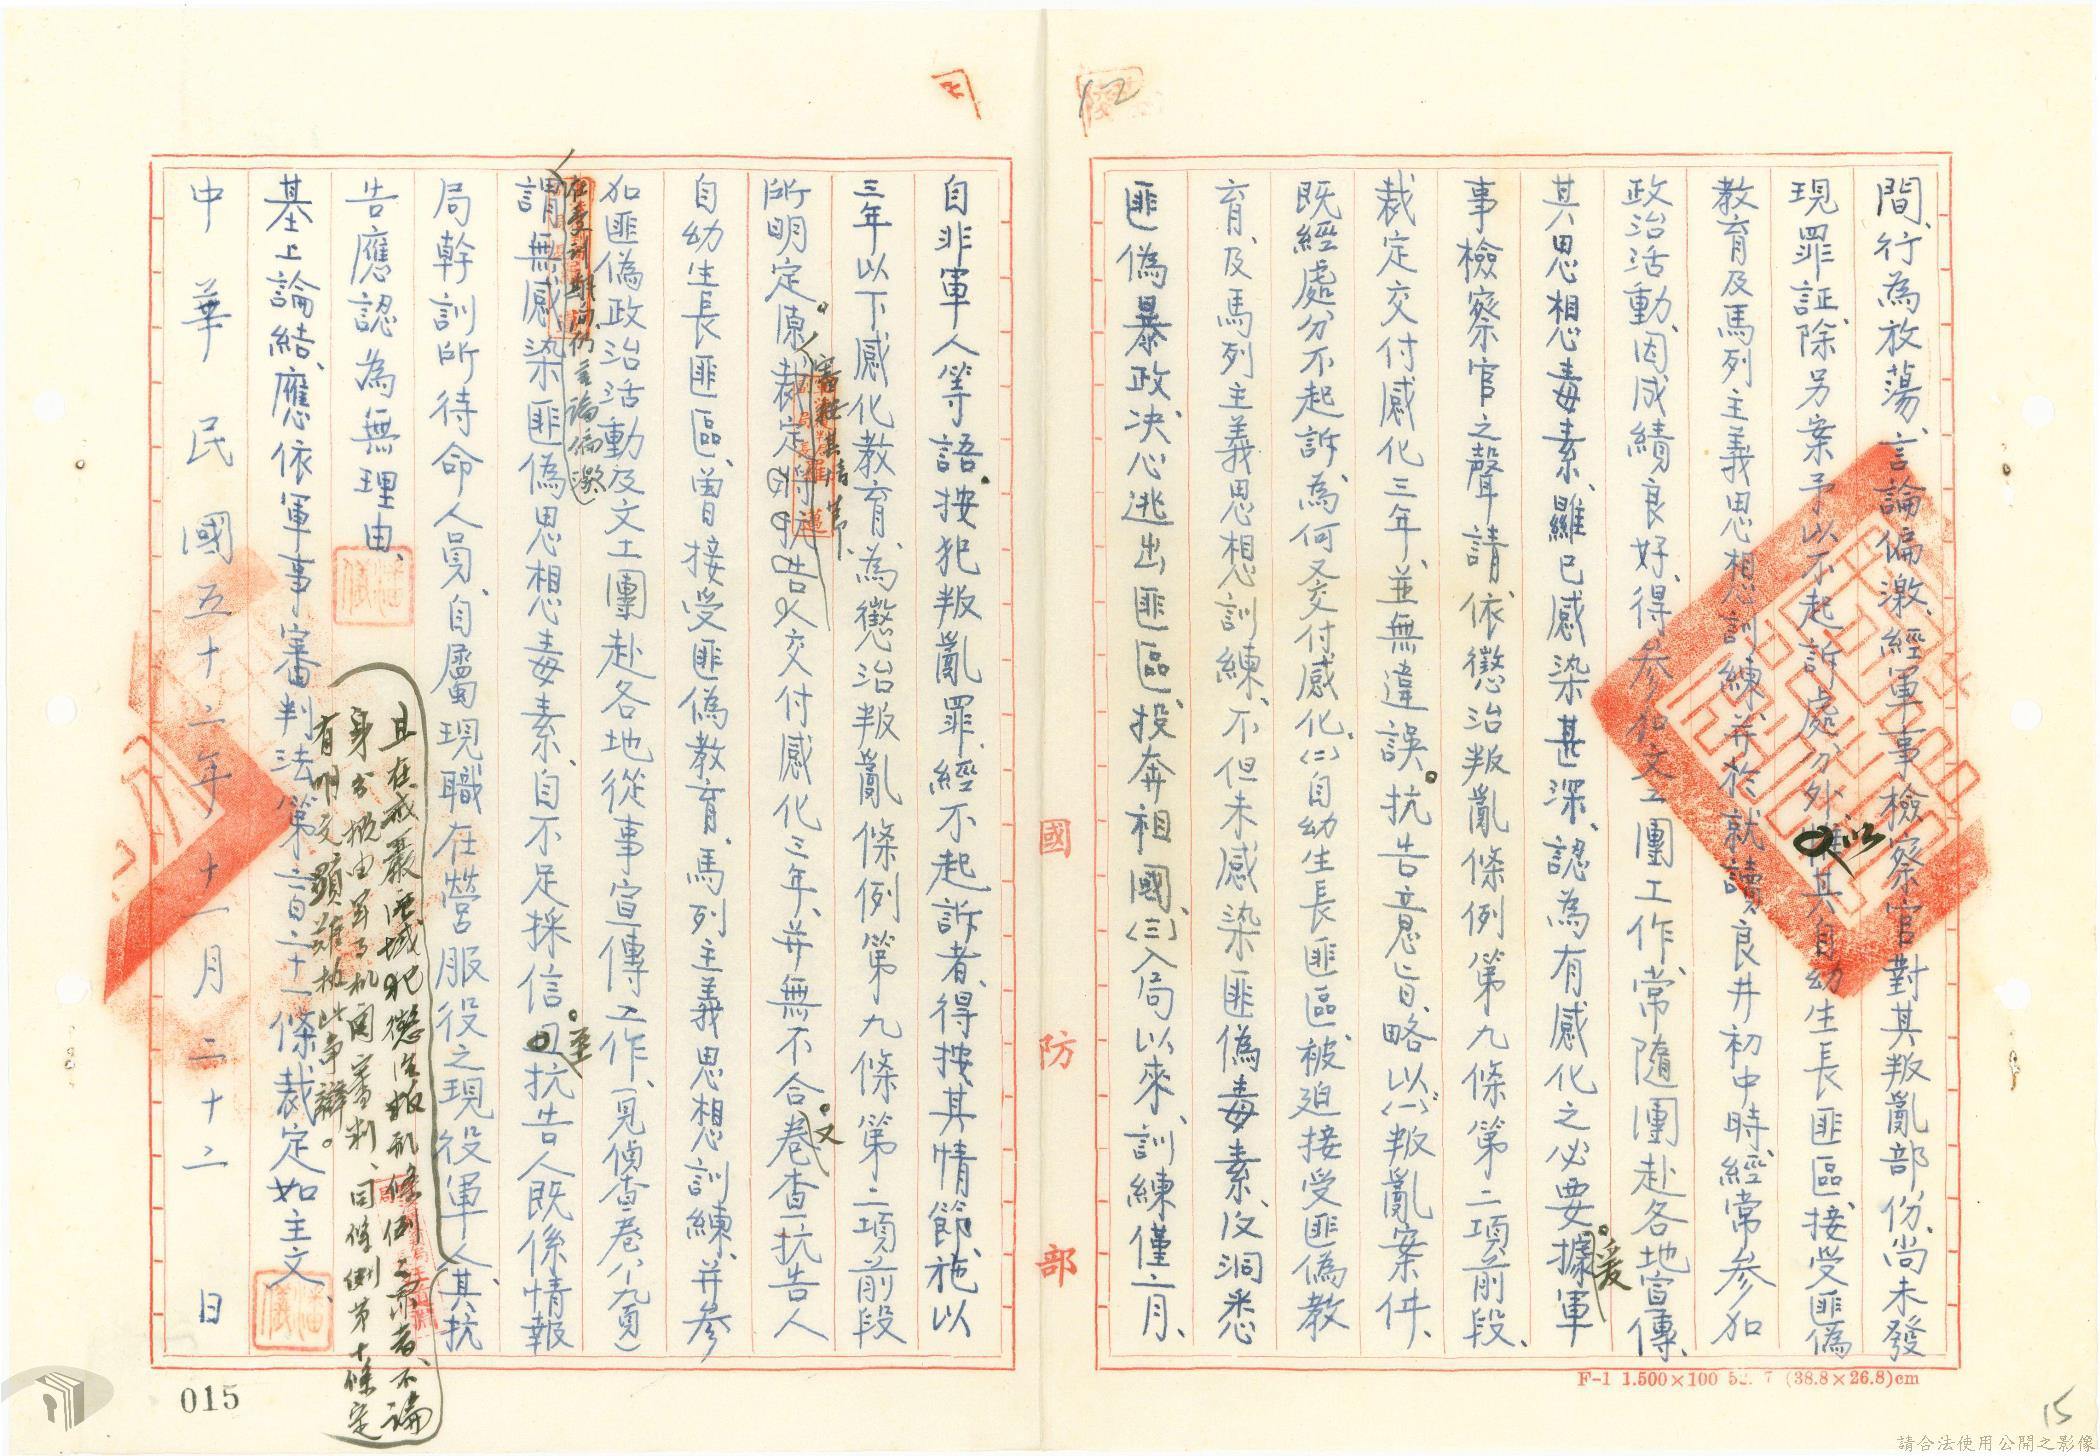 間、行為放蕩、言論偏激、經軍事檢察官對其叛亂部份、尚未發
現罪証、除另案予以不起訴處分外、惟其自幼生長匪區、接受匪偽
以
教育及馬列主義思想訓練、并於就讀良井初中時、經常參加
政治活動、因成績良好、得參加文工團工作、常隨團赴各地宣傳、
其思想毒素、雖已感染甚深、認為有感化之必要、據軍
。爰
事檢察官之聲請、依懲治叛亂條例第九條第二項前段、
裁定交付感化三年、並無違誤。抗告意旨、略以㈠叛亂案件、
既經處分不起訴、為何又交付感化、㈡自幼生長匪區、被迫接受匪偽教
育、及馬列主義思想訓練、不但未感染匪偽毒素、反洞悉
匪偽暴政、決心逃出匪區、投奔祖國、㈢入局以來、訓練僅二月、
國防部
自非軍人等語。按犯叛亂罪、經不起訴者、得按其情節、施以
三年以下感化教育、為懲治叛亂條例第九條第二項前段
所明定。原裁定將抗告人交付感化三年、并無不合。卷查抗告人
審按其情節、
又
自幼生長匪區、曾接受匪偽教育、馬列主義思想訓練、并參
加匪偽政治活動及文工團赴各地從事宣傳工作、(見偵查卷八、九頁)
在受訓期間、仍言論偏激
謂無感染匪偽思想毒素、自不足採信。且抗告人既係情報
。至
局幹訓所待命人員、自屬現職在營服役之現役軍人、其抗
且在戒嚴區域犯懲治叛亂條例之罪者、不論
身分概由軍事機關審判、同條例第十條定
有明文、顯難執此爭辯。
告應認為無理由、
基上論結、應依軍事審判法第二百二十一條、裁定如主文、
中華民國五十二年十一月二十二日
015
F-1 1.500×100 52. 7 (38.8×26.8)cm
12
15
請合法使用公開之影像